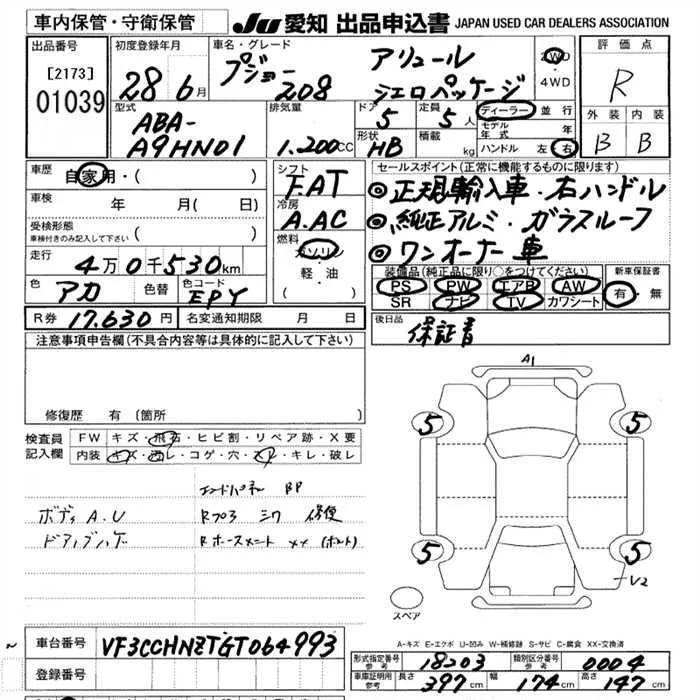 車内保管・守衛保管 JU 愛知 出品申込書 JAPAN USED CAR DEALERS ASSOCIATION
出品番号 [2173] 01039
初度登録年月 28 6月
車名・グレード プジョー 208 アリュール シエロパッケージ
2WD 4WD
評価点 R
外装 内装 B B
型式 ABA-A9HN01
排気量 1.200cc
ドア 5 定員 5人
形状 HB 積載 kg
ディーラー 並行
モデル年式 年
ハンドル 左 右
車歴 自家用・( )
車検 年 月( 日)
受検形態 車検付きのみ記入して下さい ( )
走行 4万0千530km
色 アカ 色替 色コード EPY
R券 17.630円 名変通知期限 月 日
シフト F.AT
冷房 A.AC
燃料 ガソリン 軽・油 ( )
セールスポイント(正常に機能するものに限ります)
◎正規輸入車・右ハンドル
◎純正アルミ・ガラスルーフ
◎ワンオーナー車
装備品(純正品に限り○をつけてください) 新車保証書
PS PW エアB AW 有・無
SR ナビ TV カワシート
後日品 保証書
注意事項申告欄(不具合内容等は具体的に記入して下さい)
修復歴 有 〔箇所 〕
検査員記入欄
FW キズ・飛石・ヒビ割・リペア跡・X要
内装 キズ・汚レ・コゲ・穴・スレ・キレ・破レ
エンドパネル BP
ボディ A.U Rフロア シワ 修復
ドアノブハゲ
A1
5 5
5 5
V2
スペア
A-キズ E-エクボ U-凹み W-補修跡 S-サビ C-腐食 XX-交換済
車台番号 VF3CCHNZTGT064993
登録番号
形式指定番号 参考 18203 類別区分番号 参考 0004
車庫証明用 参考 長さ 397cm 幅 174cm 高さ 147cm